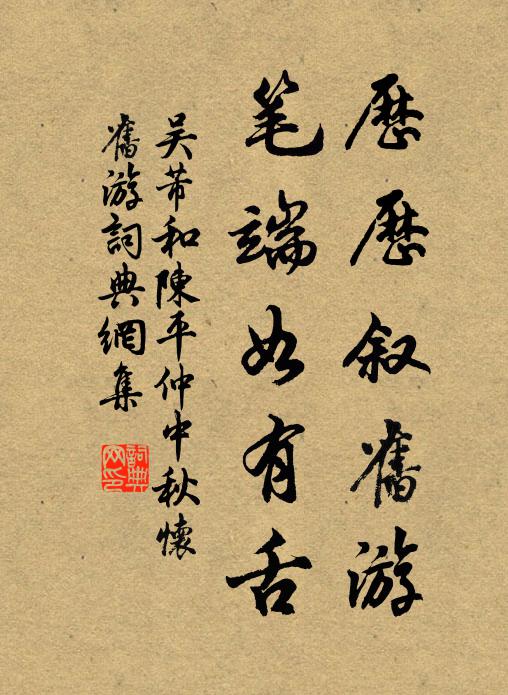 歷歷叙舊游
笔端如有舌
吴芾和陳平仲中秋懷
舊游詞典網集
詞典网印